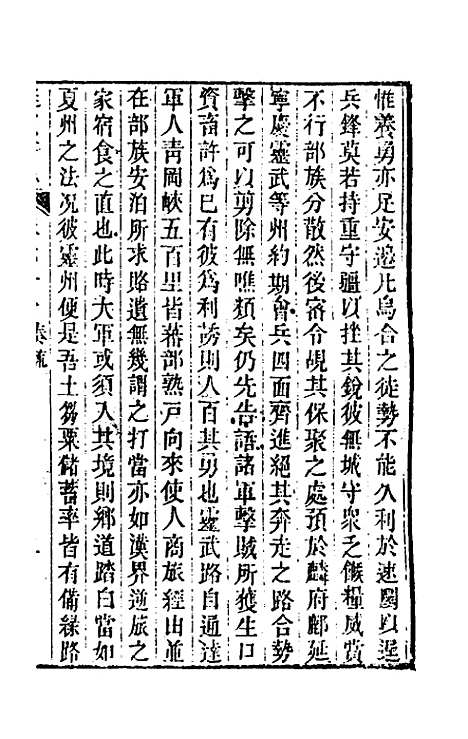 惟義勇亦足安邉此烏合之徒勢不能久利於速鬬以逞
兵鋒莫若持重守疆以挫其銳彼無城守衆乏餱糧威賞
不行部族分散然後審令覘其保聚之處預於麟府鄜延
寧慶靈武等州約期會兵四面齊進絕其奔走之路合勢
擊之可以剪除無噍類矣仍先告語諸軍擊賊所獲生口
資畜許爲已有彼爲利誘則人百其勇也靈武路自通達
軍人青岡峽五百里皆蕃部熟戸向來使人商旅經由並
在部族安泊所求賂遺無幾謂之打當亦如漢界逆旅之
家宿食之直也此時大軍或須入其境則鄉道踏白當如
夏州之法況彼靈州便是吾土芻粟儲蓄率皆有備緣路
奏疏